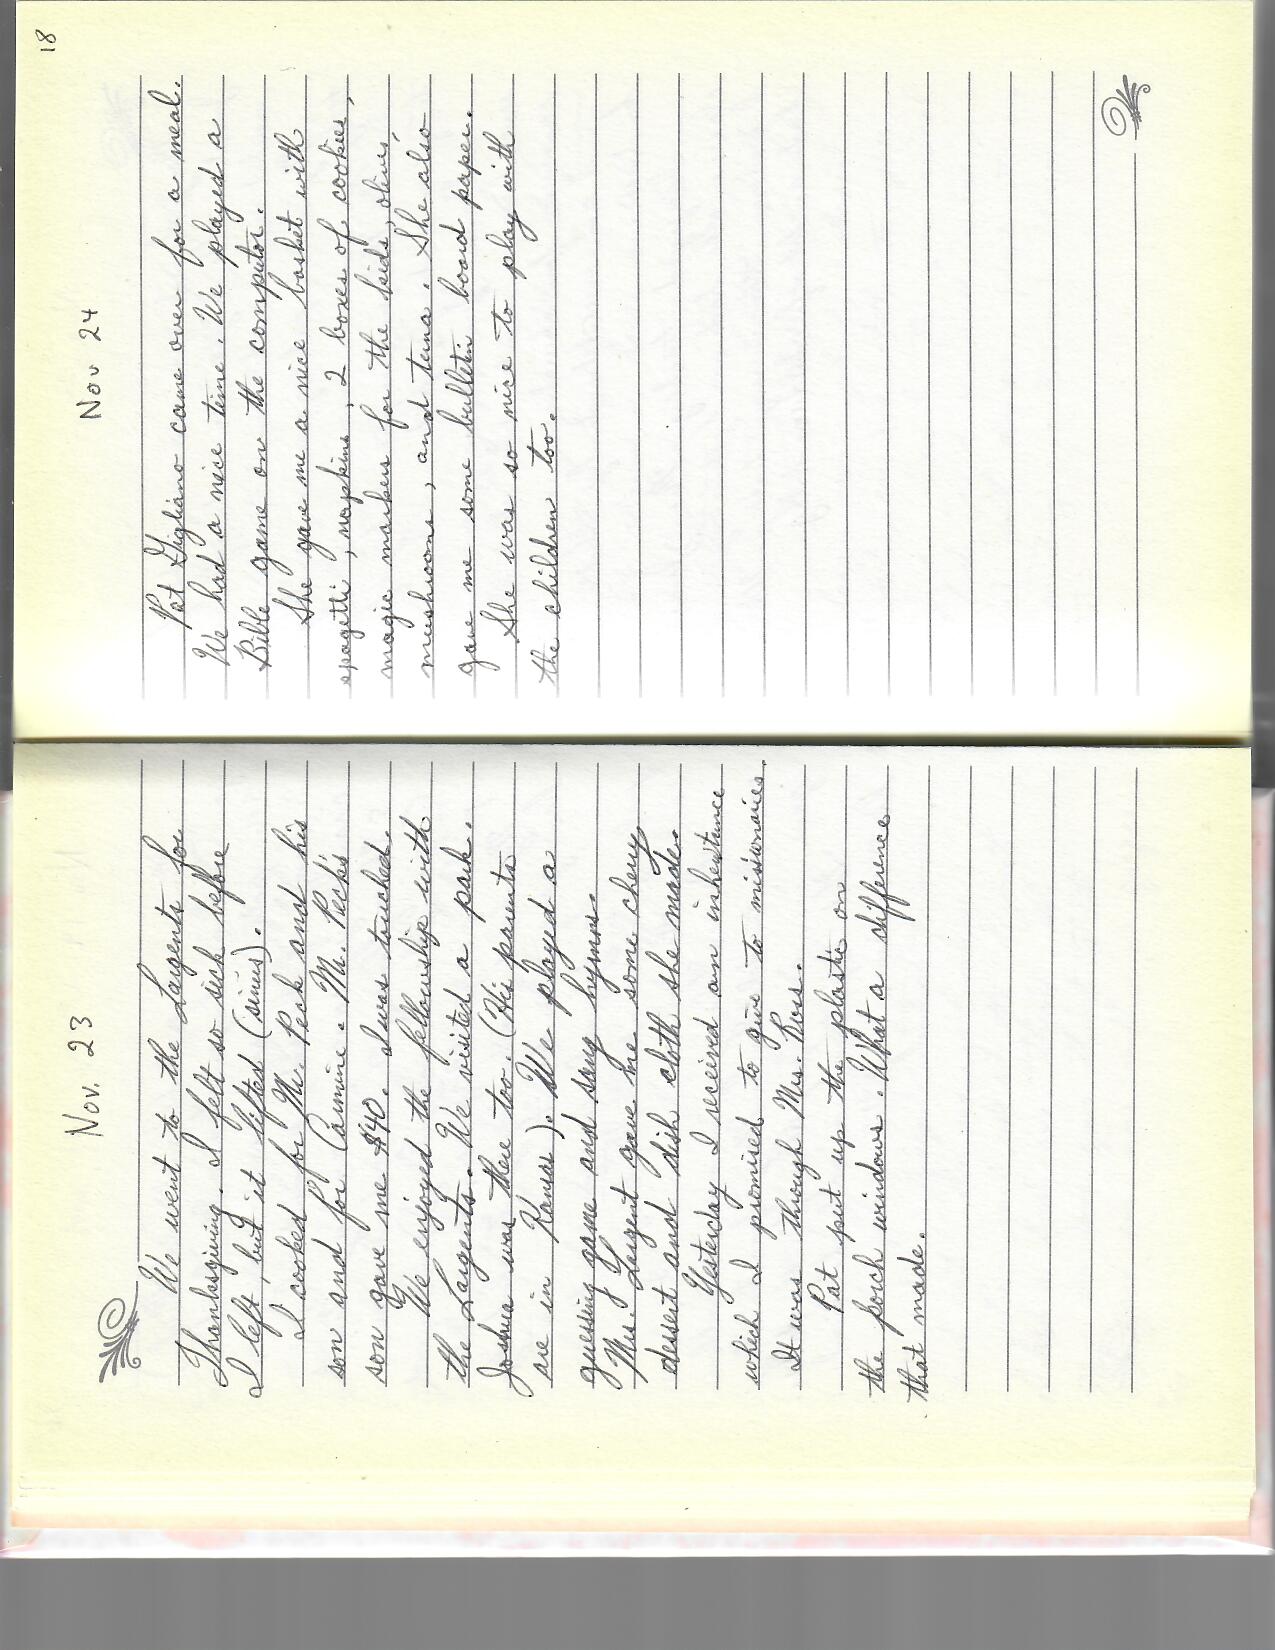 Nov. 23
We went to the Largents for
Thanksgiving. I felt so sick before
I left, but it lifted (sinus).
I cooked for Mr. Peck and his
son and for Carmine. Mr. Peck's
son gave me $40. I was touched.
We enjoyed the fellowship with
the Largents. We visited a park.
Joshua was there too. (His parents
are in Kansas). We played a
guessing game and sang hymns.
Mrs. Largent gave me some cherry
dessert and dish cloth she made.
Yesterday I received an inheritance
which I promised to give to missionaries.
It was through Mrs. Ross.
Pat put up the plastic on
the porch windows. What a difference
that made.
18
Nov 24
Pat Gigliano came over for a meal.
We had a nice time. We played a
Bible game on the computor.
She gave me a nice basket with
spagetti, napkins, 2 boxes of cookies,
magic markers for the kids, olives,
mushrooms, and tuna. She also
gave me some bulletin board paper.
She was so nice to play with
the children too.